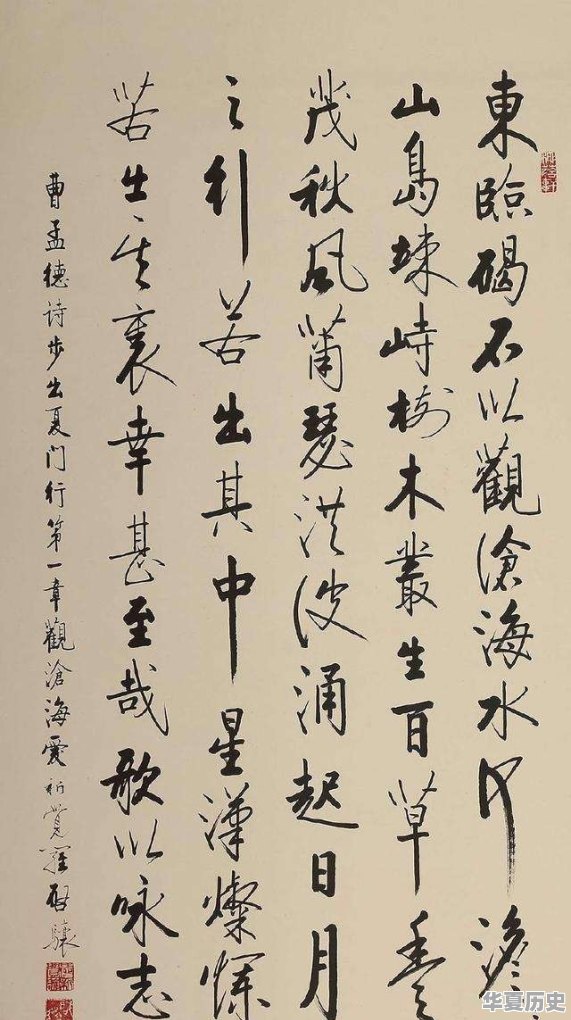 東臨碣石以觀滄海水何澹
山島竦峙樹木叢生百草豐
茂秋風蕭瑟洪波涌起日月
之行若出其中星漢燦爛
若出其裏幸甚至哉歌以詠志
曹孟德詩步出夏門行第一章觀滄海愛新覺羅啟驤
华夏历史